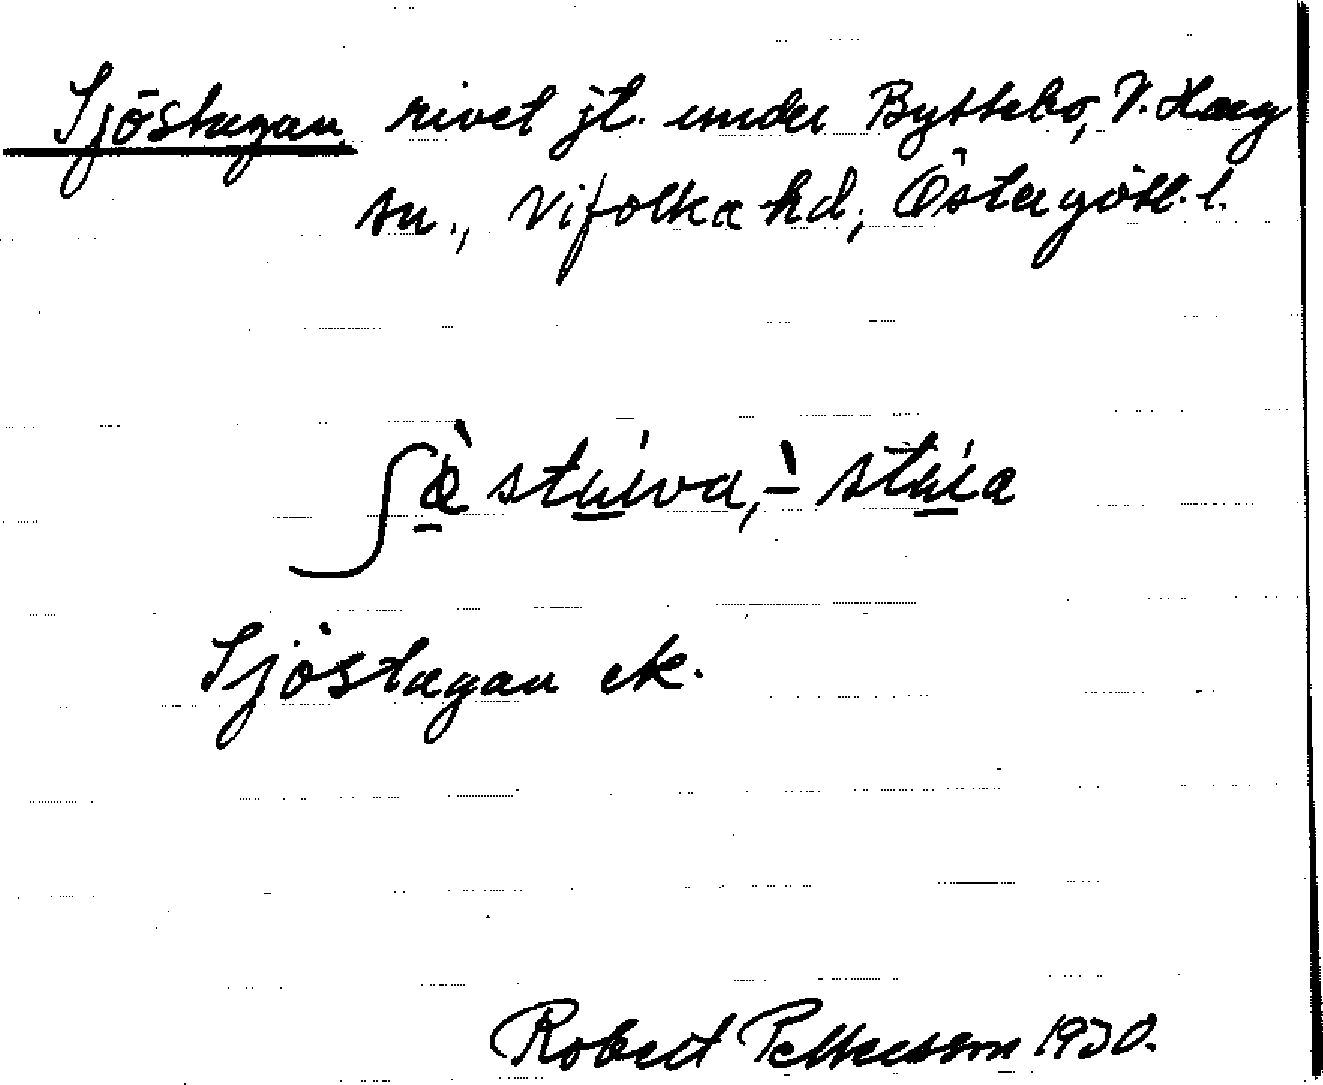 Sjöstugan, rivet jt. under Byttebo, V. Harg
sn., Vifolka hd, Östergötl. l.
stúiva, stúia
Sjöstugan ek.
Robert Pettersson 1930.